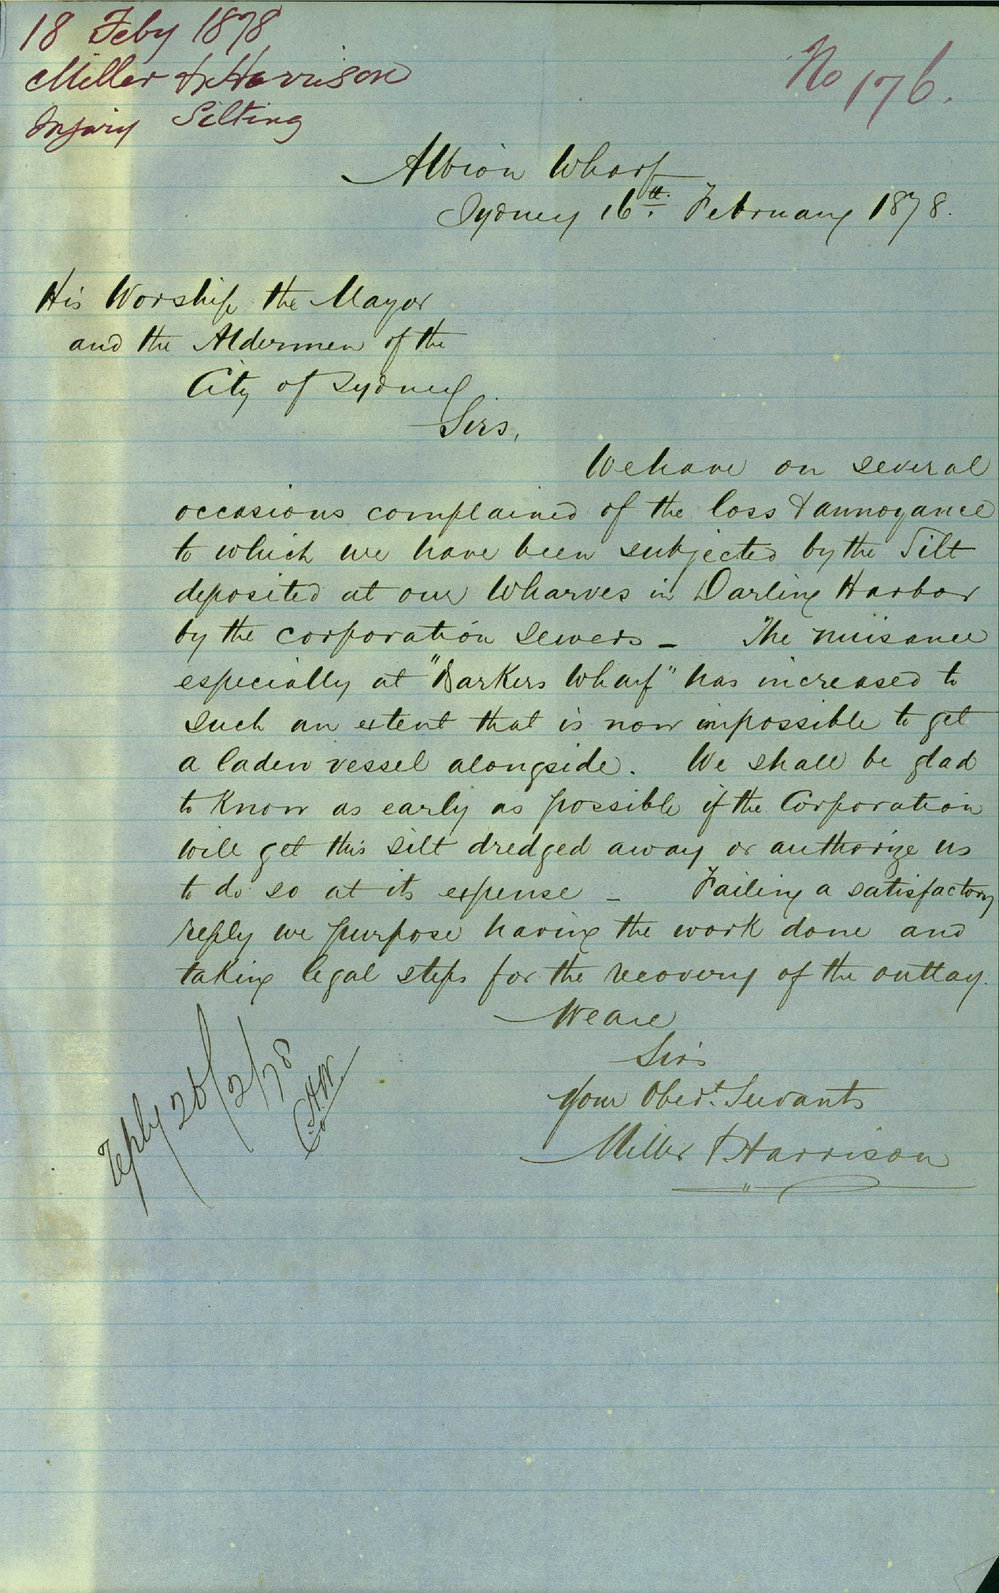 18 Feby 1878
Miller & Harrison
Injury Silting
No 176.
Albion Wharf
Sydney 16th. February 1878.
His Worship the Mayor
and the Aldermen of the
City of Sydney
Sirs,
We have on several
occasions complained of the loss & annoyance
to which we have been subjected by the Silt
deposited at our Wharves in Darling Harbor
by the corporation sewers – The nuisance
especially at "Barkers Wharf" has increased to
such an extent that is now impossible to get
a laden vessel alongside. We shall be glad
to know as early as possible if the Corporation
will get this silt dredged away or authorize us
to do so at its expense – Failing a satisfactory
reply we purpose having the work done and
taking legal steps for the recovery of the outlay.
We are
Sirs
Your Obedt. Servants
Miller & Harrison
reply 26/2/78